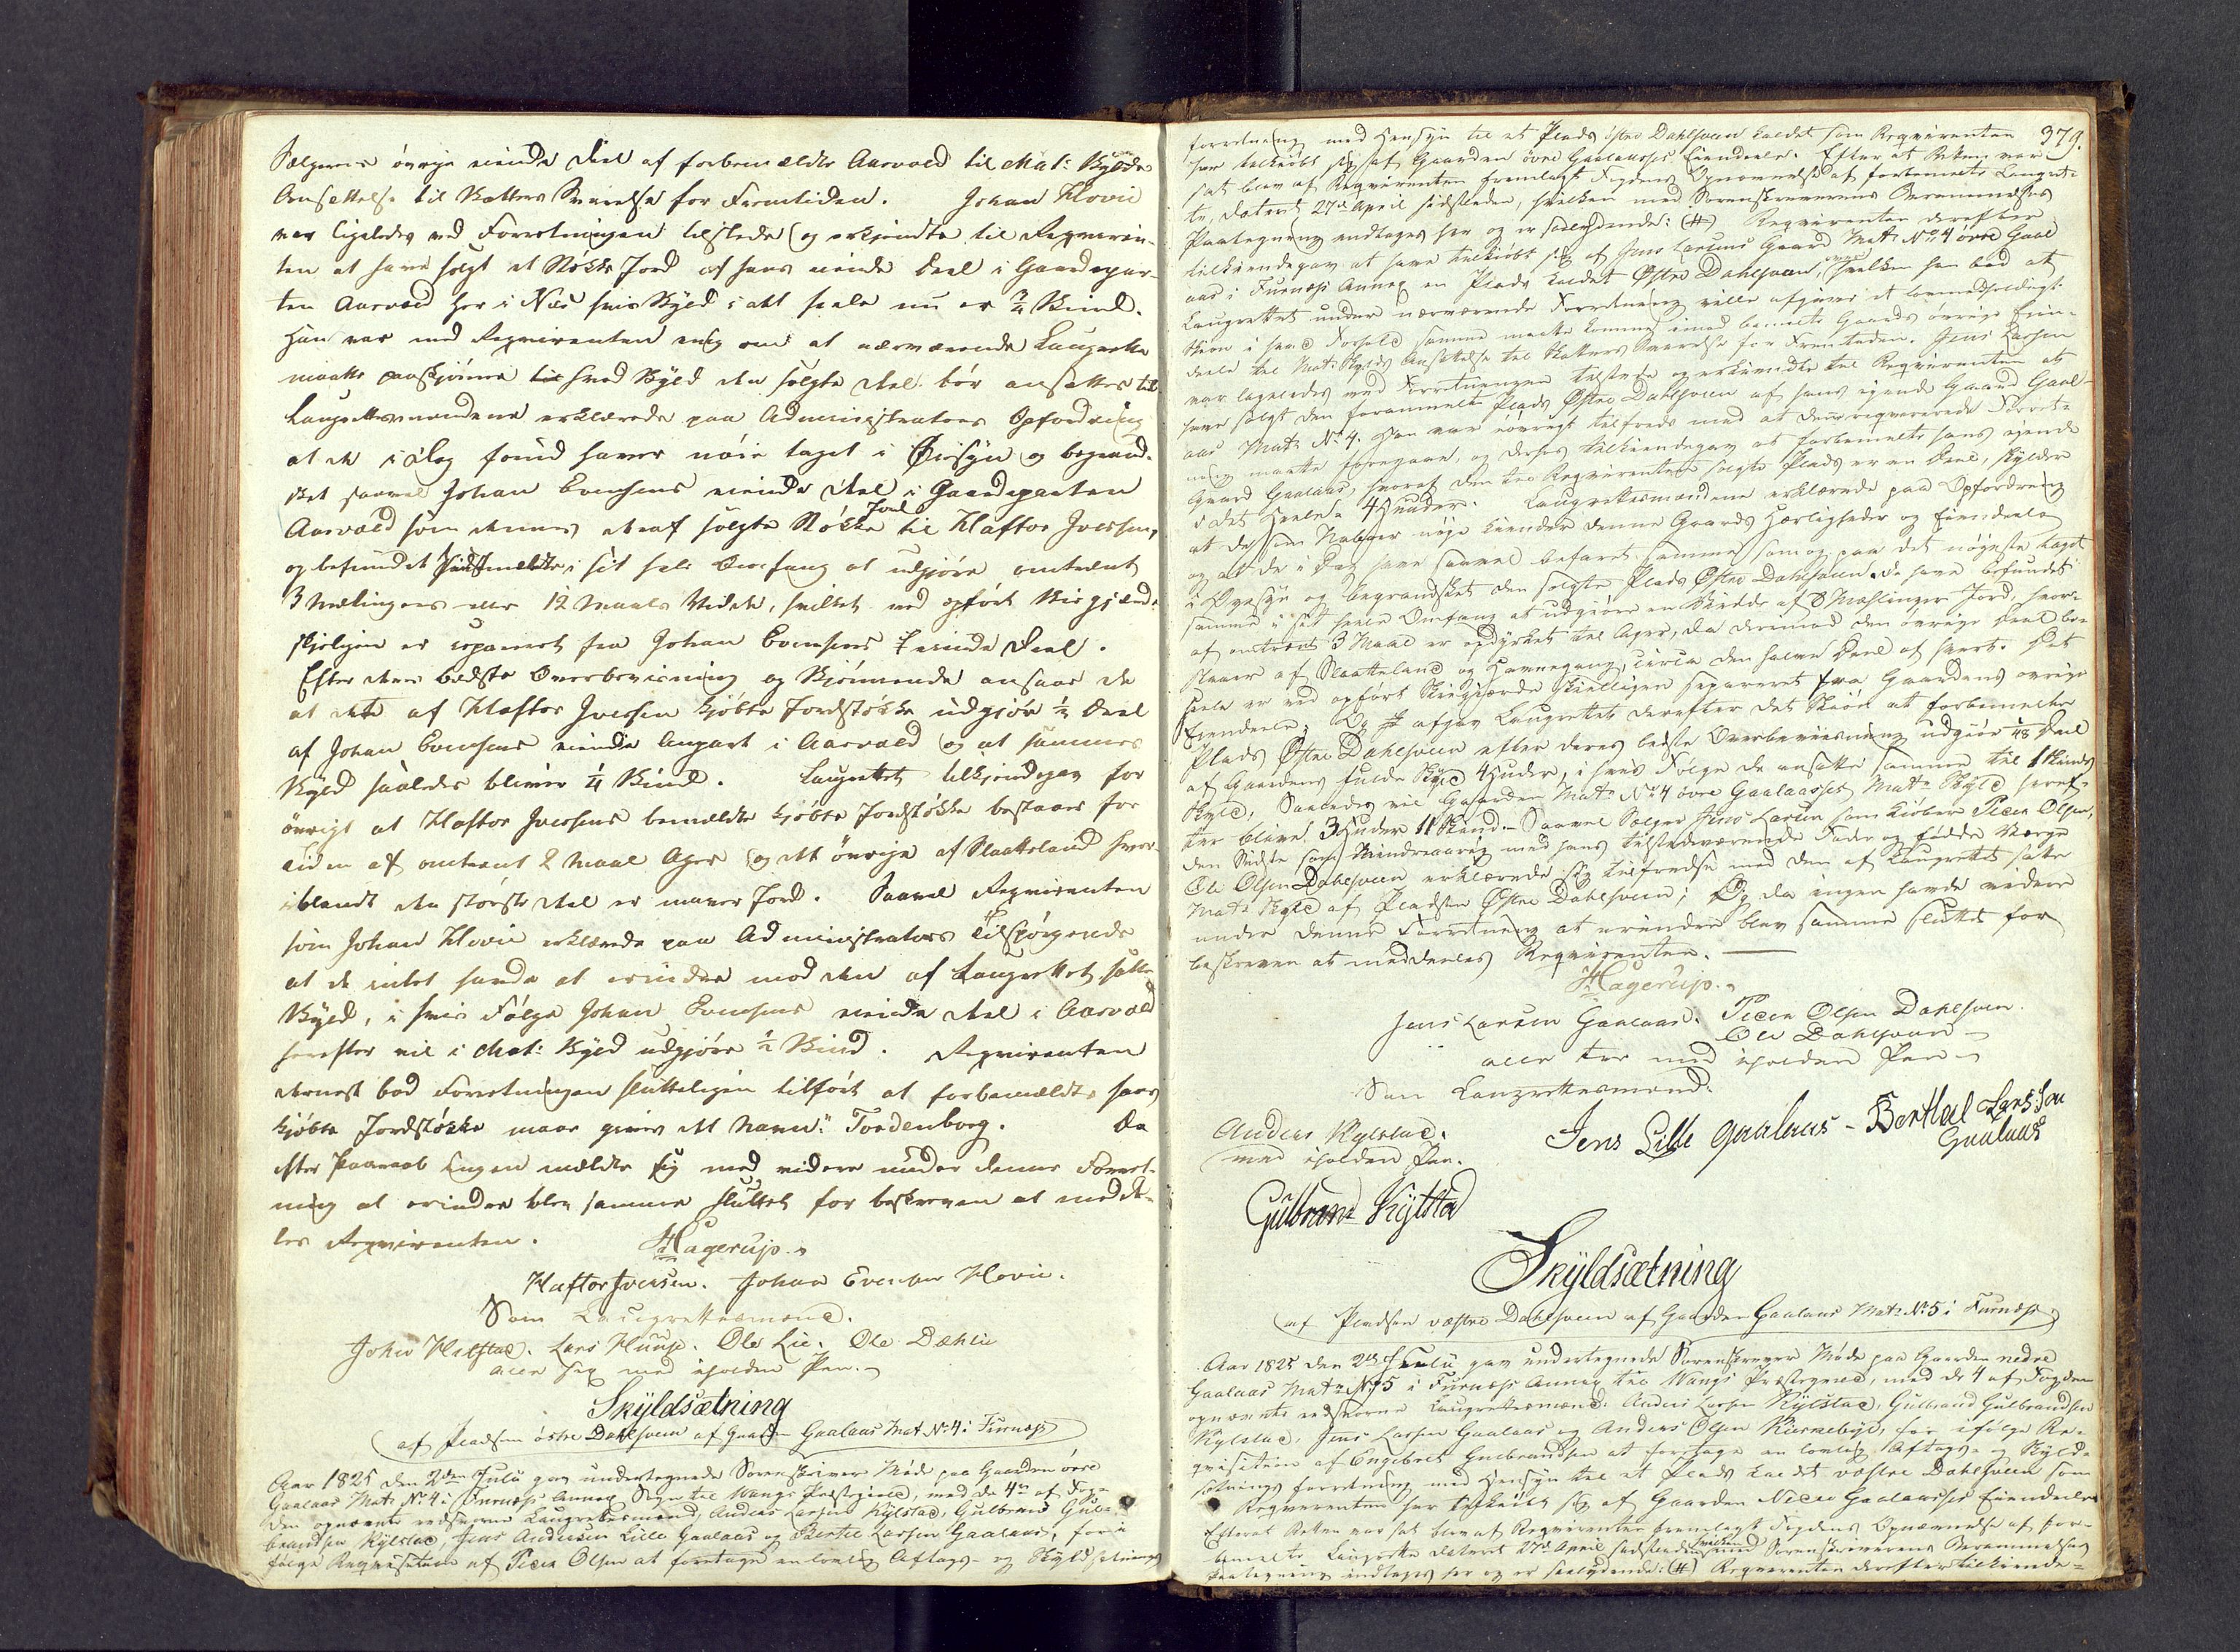 Sælgerens øvrige eiende Deel af forbemældte Aasvold til Mat: Skylds
Ansættelse til Skatters Svarelse for Fremtiden. Johan Klovie
var ligeledes ved Forretningen tilstede og erkjendte til Reqviren-
ten at have solgt et Støkke Jord af hans eiende Deel i Gaardepar-
ten Aasvold her i Næs hvis Skyld i alt heele nu er Skind.
Han var med Reqvirenten enig om at nærværende Laugrette
maatte paaskjønne hvad Skyld den solgte Deel bør ansættes til
Laugrettesmændene erklærede paa Administrators Opfordring
at de i Dag forud haver nøie taget i Øiesyn og begrand-
sket saavel Johan Evensens eiende Deel i Gaardeparten
Aasvold som dennes deraf solgte Støkke Jord til Haftor Iversen,
og befundet sidstmeldte i sit hele Omfang at udgjøre omtrent
3 Mælinger eller 12 Maals Vidde, hvilket ved opført Skigjærde
skjeligen er separeret fra Johan Evensens eiende Deel.
Efter deres bedste Overbeviisning og Skjønnende ansaae de
at dette af Haftor Iversen kjøbte Jordstøkke udgjør ½ Deel
af Johan Evensens eiende Anpart i Aasvold og at sammes
Skyld saaledes bliver ¼ Skind. Laugrettet tilkjendegav for
øvrigt at Haftor Iversens bemældte kjøbte Jordstøkke bestaaer for
Tiden af omtrent 2 Maal Ager og det øvrige af Slaatteland hvor-
iblandt den største Deel er maver Jord. Saavel Reqvirenten
som Johan Klovie erklærede paa Administrators Tilspørgende
at de intet havde at erindre mod den af Laugrettet satte
Skyld, i hvis Følge Johan Evensens eiende Deel i Aasvold
herefter vil i Mat: Skyld udgjøre ½ Skind. Reqvirenten
dernest bad Forretningen slutteligen tilført at forbemældte hans
kjøbte Jordstøkke maae gives det Navn: Tordenborg. Da
efter Paaraab Ingen meldte sig med videre under denne Forret-
ning at erindre blev samme sluttet for beskreven at medde-
les Reqvirenten. Hagerup.
Haftor Iversen. Johan Evensen Klovie.
Som Laugrettesmænd.
John Helstad. Lars Huuse. Ole Lie. Ole Dæhlie
alle sex med iholden Pen.
Skyldsætning
af Pladsen østre Dahlsveen af Gaarden Gaalaas Mat. No. 4 i Furnæss
Aar 1825 den 2den Juli gav undertegnede Sorenskriver Møde paa Gaarden øvre
Gaalaas Matr. No. 4 i Furnæss Annex Sogn til Wangs Præstegield, med de 4re af Fog-
den opnævnte eedsvorne Laugrettesmænd, Anders Larsen Kylstad, Gulbrand Gul-
brandsen Kylstad, Jens Andersen Lille Gaalaas og Berthel Larsen Gaalaas, for i
følge Reqvisition af Peder Olsen at foretage en lovlig Aftags- og Skyldsætnings
379.
forretning med Hensyn til et Plads østre Dahlsveen kaldet som Reqvirenten
har tilkiøbt sig af Gaarden øvre Gaalaasses Eiendeele. Efter at Retten var
sat blev af Reqvirenten fremlagt Fogdens Opnævnelse af forbemeldte Laugret-
te, dateret 27de April sidstleden, hvilken med Sorenskriverens Berammelses
Paategning indtages her og er saalydende: (#) Reqvirenten derefter
tilkiendegav at have tilkiøbt sig af Jens Larsens Gaard Mat. No. 4 øvre Gaal-
aas i Furnæss Annex en Plads kaldet Østre Dahlsveen, hvilken han bad at
Laugrettet under nærværende Forretning ville afgives et lovmedholdigt
Skiøn i hvad Forhold samme maatte komme imod bemeldte Gaards øvrige Eien-
deele til Mat: Skylds Ansættelse til Skatters Svarelse for Fremtiden. Jens Larsen
var ligeledes ved Forretningen tilstede og erkiendte til Reqvirenten at
have solgt den forommeldte Plads Østre Dahlsveen af hans eiende Gaard Gaal-
aas Matr. No. 4. Han var iøvrigt tilfreds med at den reqvirerede Forret-
ning maatte foregaae, og derhos tilkiendegav at forbemeldte hans eiende
Gaard Gaalaas, hvoraf den til Reqvirenten solgte Plads er en Deel, skylder
i det Heele 4 Huder. Laugrettesmændene erklærede paa Opfordring
at de som Naboer nøye kiender denne Gaards Herligheder og Eiendeele
og at de i Dag have saavel befaret samme som og paa det nøyeste taget
i Øyesyn og begrandsket den solgte Plads Østre Dahlsveen. De have befundet
samme i sit heele Omfang at udgiøre en Vidde af 8 Mæhlinger Jord, hvor-
af omtrent 3 Maal er opdyrket til Ager, da derimod den øvrige Deel be-
staaer af Slaatteland og Havnegang, circa den halve Deel af hvert. Det
Heele er ved opført Skiegiærde skielligen separeret fra Gaardens øvrige
Eiendeele; Og afgav Laugrettet derefter det Skiøn at forbemeldte
Plads Østre Dahlsveen efter deres bedste Overbeviisning udgiør 1/48 Deel
af Gaardens fulde Skyld 4 Huder, i hvis Følge de ansætte samme til 1 Skinds
Skyld, Saaledes vil Gaarden Matr. No. 4 øvre Gaalaasses Matr. Skyld heref-
ter blive 3 Huder 11 Skind. Saavel Sælger Jens Larsen som Kiøber Peder Olsen,
den Sidste som Mindreaarig med hans tilstedeværende Fader og fødde Værge
Ole Olsen Dahlsveen erklærede sig tilfredse med den af Laugrettet satte
Matr. Skyld af Pladsen Østre Dahlsveen; Og da ingen havde videre
under denne Forretning at erindre blev samme sluttet for
beskreven at meddeeles Reqvirenten.
Hagerup.
Jens Larsen Gaalaas. Peder Olsen Dahlsveen.
Ole Dahlsveen
alle tre med iholden Pen
Som Laugrettesmænd:
Anders Kylstad.
med iholden Pen.
Jens Lille Gaalaas - Berthel Larssøn
Gaalaas
Gulbrand Kylstad
Skyldsætning
af Pladsen væstre Dahlsveen af Gaarden Gaalaas Matr. No. 5 i Furnæss
Aar 1825 den 2den Juli gav undertegnede Sorenskriver Møde paa Gaarden nedre
Gaalaas Matr. No. 5 i Furnæss Annex til Wangs Præstegield, med de 4 af Fogden
opnævnte eedsvorne Laugrettesmænd: Anders Larsen Kylstad, Gulbrand Gulbrandsen
Kylstad, Jens Larsen Gaalaas og Anders Olsen Kiernebye, for ifølge Re-
qvisition af Engebret Gulbrandsen at foretage en lovlig Aftags- og Skyld-
sætnings forretning med Hensyn til et Plads kaldet væstre Dahlsveen som
Reqvirenten har tilkiøbt sig af Gaarden Nedre Gaalaasses Eiendeele
Efterat Retten var sat blev af Reqvirenten fremlagt Fogdens Opnævnelse af for-
bemeldte Laugrette dateret 27de April sidstleden hvilken med Sorenskriverens Berammelses
Paategning indtages her og er saalydende: (#) Reqvirenten derefter tilkiende-